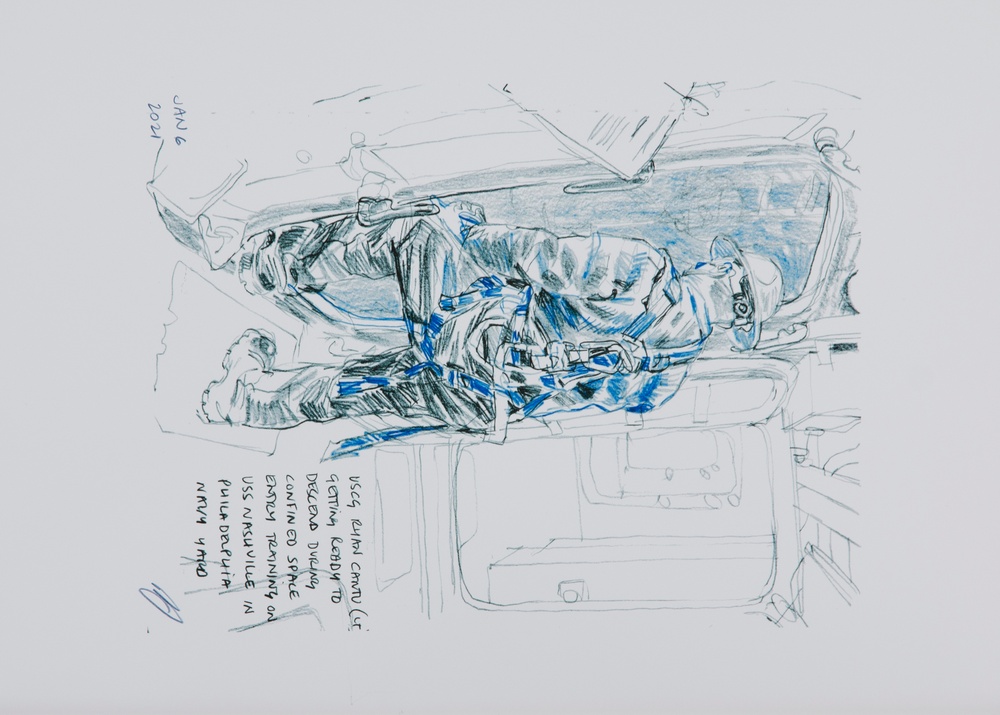 JAN 6
2021
USCG RYAN CANTU (Lt
GETTING READY TO
DESCEND DURING
CONFINED SPACE
ENTRY TRAINING ON
USS NASHVILLE IN
PHILADELPHIA
NAVY YARD